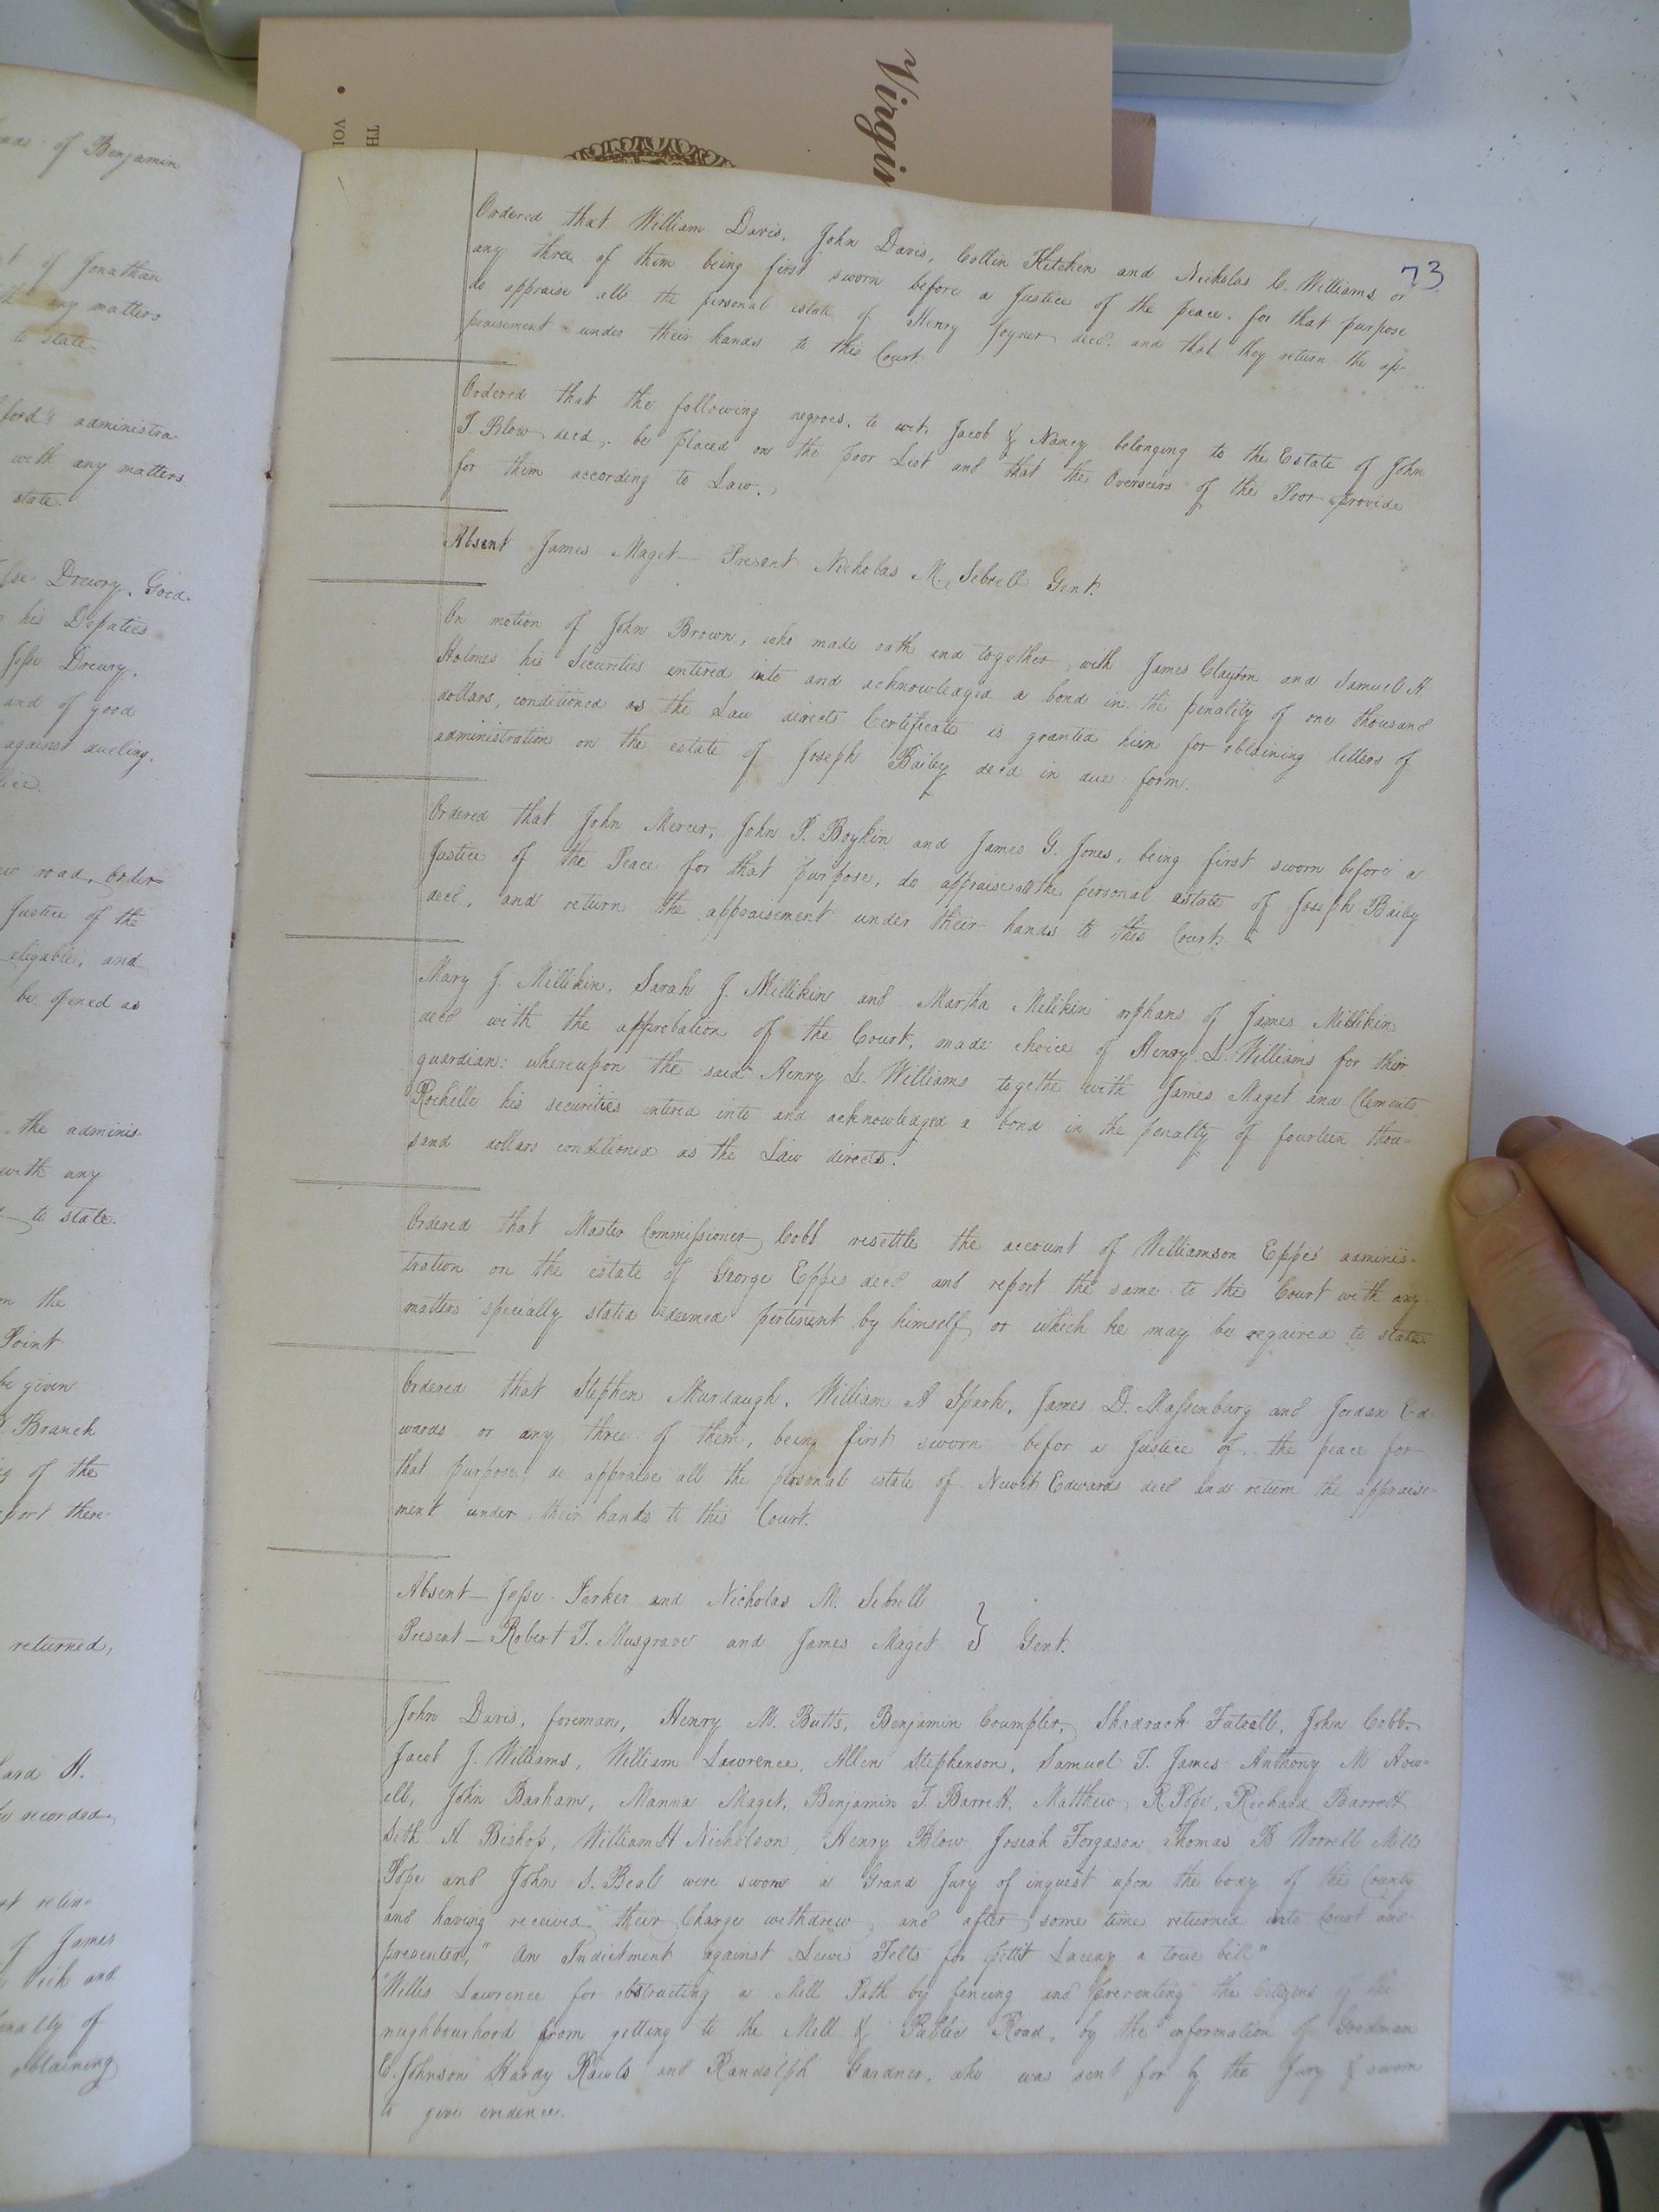 Virgin
TH
VOL
nds of Benjamin
t of Jonathan
any matters
to state.
ford's administra
with any matters
state.
Drewry, Good.
his Deputies
Jesse Drewry,
and of good
against dueling.
road, order=
Justice of the
eligable, and
be opened as
the adminis-
with any
to state.
the
Point
be given
Branch
of the
port there-
returned,
ard H.
recorded
relin-
of James
and
nalty of
obtaining
73
Ordered that William Davis, John Davis, Collin Kitchen and Nicholas C. Williams or
any three of them being first sworn before a Justice of the peace for that purpose
do appraise all the personal estate of Henry Joyner decd. and that they return the ap-
praisement under their hands to this Court.
Ordered that the following negroes, to wit, Jacob & Nancy belonging to the Estate of John
T. Blow decd, be placed on the poor List and that the Overseers of the Poor provide
for them according to Law.
Absent James Maget — Present Nicholas M. Sebrell Gent.
On motion of John Brown, who made oath and together with James Clayton and Samuel H
Holmes his Securities entered into and acknowledged a bond in the penality of one thousand
dollars, conditioned as the Law directs Certificate is granted him for obtaining letters of
administration on the estate of Joseph Bailey decd in due form.
Ordered that John Mercer, John P. Boykin and James G. Jones, being first sworn before a
Justice of the Peace for that purpose, do appraise all the personal estate of Joseph Baily
decd, and return the appraisement under their hands to this Court.
Mary J. Millikin, Sarah J. Millikin and Martha Milikin orphans of James Millikin
decd with the approbation of the Court, made choice of Henry L. Williams for their
guardian: whereupon the said Henry L. Williams togethe with James Maget and Clements
Rochelle his securities entered into and acknowledged a bond in the penalty of fourteen thou=
sand dollars conditioned as the Law directs.
Ordered that Master Commissioner Cobb resettle the account of Williamson Eppes' adminis-
tration on the estate of George Eppes decd and report the same to this Court with any
matters specially stated deemed pertinent by himself or which he may be required to state
Ordered that Stephen Murdaugh, William A Spark, James D. Massenburg and Jordan Ed-
wards or any three of them, being first sworn befor a Justice of the peace for
that purpose, do appraise all the personal estate of Newit Edwards decd and return the appraise-
ment under their hands to this Court.
Absent — Jesse Parker and Nicholas M. Sebrell
Present — Robert T. Musgrave and James Maget } Gent.
John Davis, foreman, Henry M. Butts, Benjamin Crumpler, Shadrack Futrell, John Cobb,
Jacob J. Williams, William Lawrence, Allen Stephenson, Samuel T. James Anthony M How-
ell, John Barham, Manna Maget, Benjamin T. Barrett, Matthew R. Pope, Richard Barrett
Seth H Bishop, William H Nicholson, Henry Blow, Josiah Forgason Thomas B Worrell Mills
Pope and John S. Beal were sworn a Grand Jury of inquest upon the body of this County
and having received their Charge withdrew, and after some time returned into Court and
presented, "An Indictment against Lewis Felts for pettit Laceny a true bill"
"Willis Lawrence for obstructing a Mill Path by fencing and preventing the citizens of the
neighbourhood from getting to the Mill & Public Road, by the information of Goodman
C. Johnson Hardy Rawls and Randolph Gardner, who was sent for by the Jury & sworn
to give evidence.